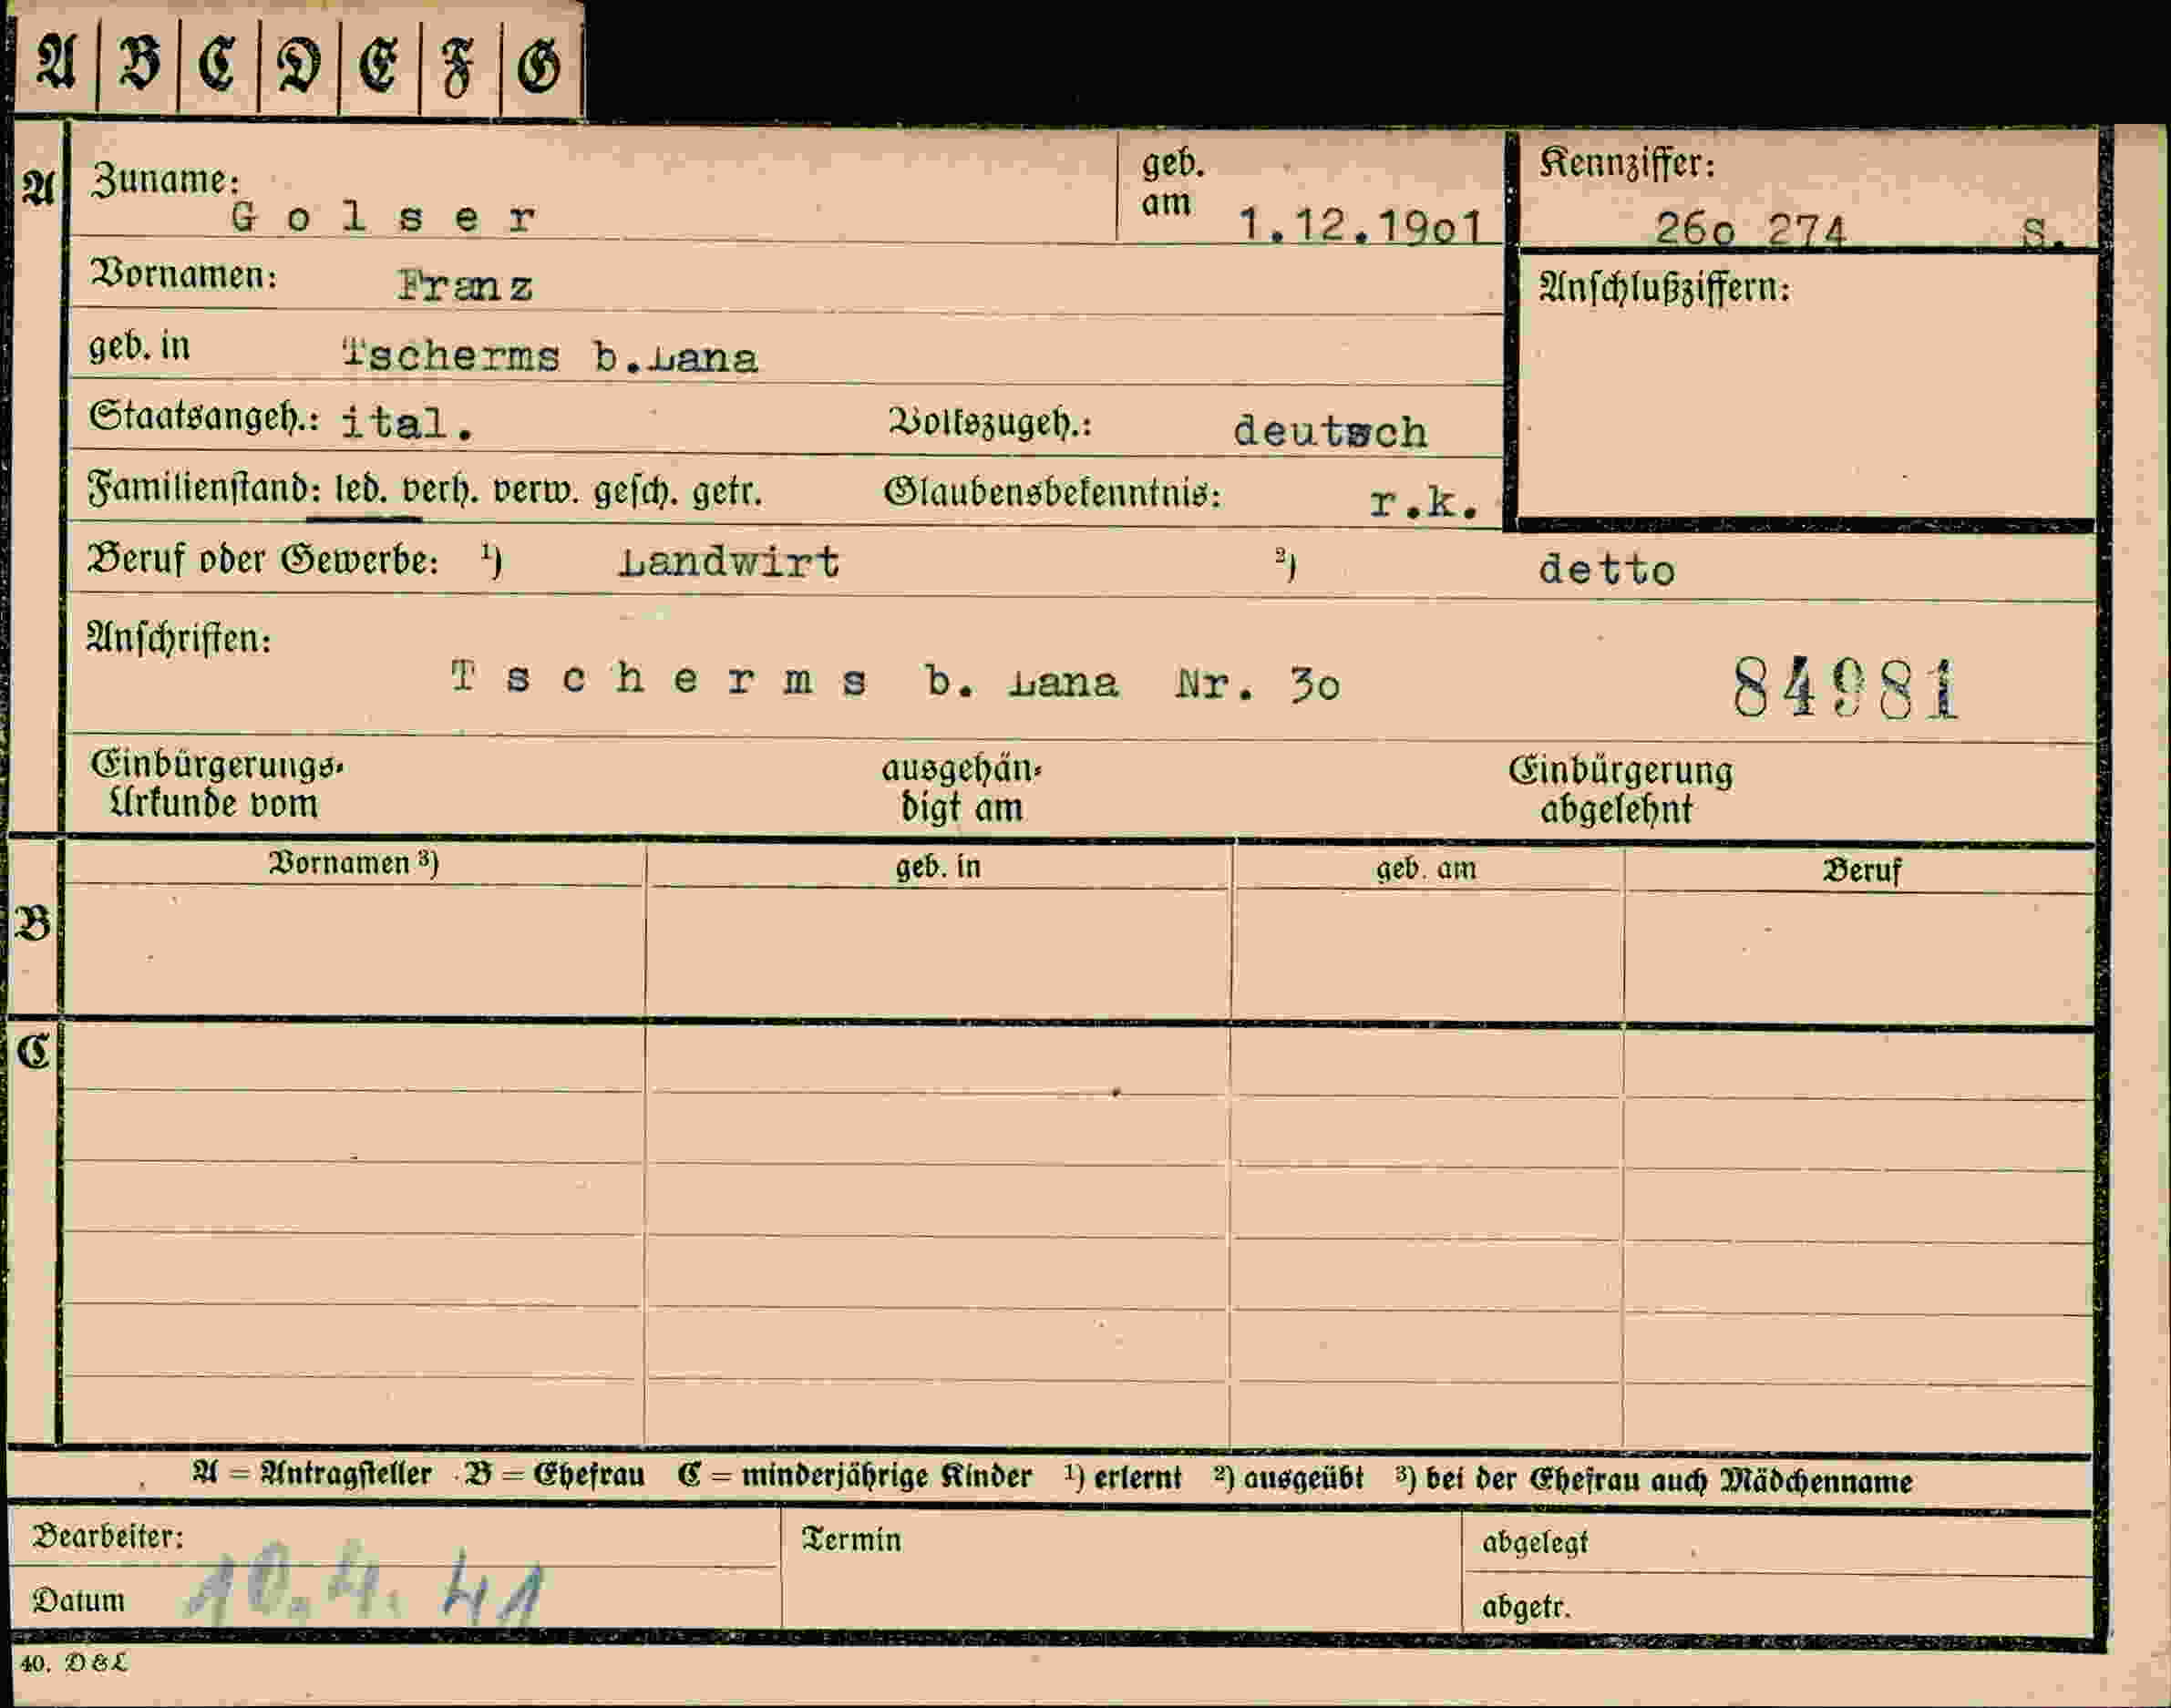 A B C D E F G
A Zuname: Golser geb. am 1.12.19o1 Kennziffer: 26o 274 S.
Vornamen: Franz Anschlußziffern:
geb. in Tscherms b.Lana
Staatsangeh.: ital. Volkszugeh.: deutsch
Familienstand: led. verh. verw. gesch. getr. Glaubensbekenntnis: r.k.
Beruf oder Gewerbe: ¹) Landwirt ²) detto
Anschriften:
Tscherms b. Lana Nr. 3o 84981
Einbürgerungs- ausgehän- Einbürgerung
Urkunde vom digt am abgelehnt
Vornamen ³) geb. in geb. am Beruf
B
C
A = Antragsteller B = Ehefrau C = minderjährige Kinder ¹) erlernt ²) ausgeübt ³) bei der Ehefrau auch Mädchenname
Bearbeiter: Termin abgelegt
Datum 10.4.41 abgetr.
40. D & L